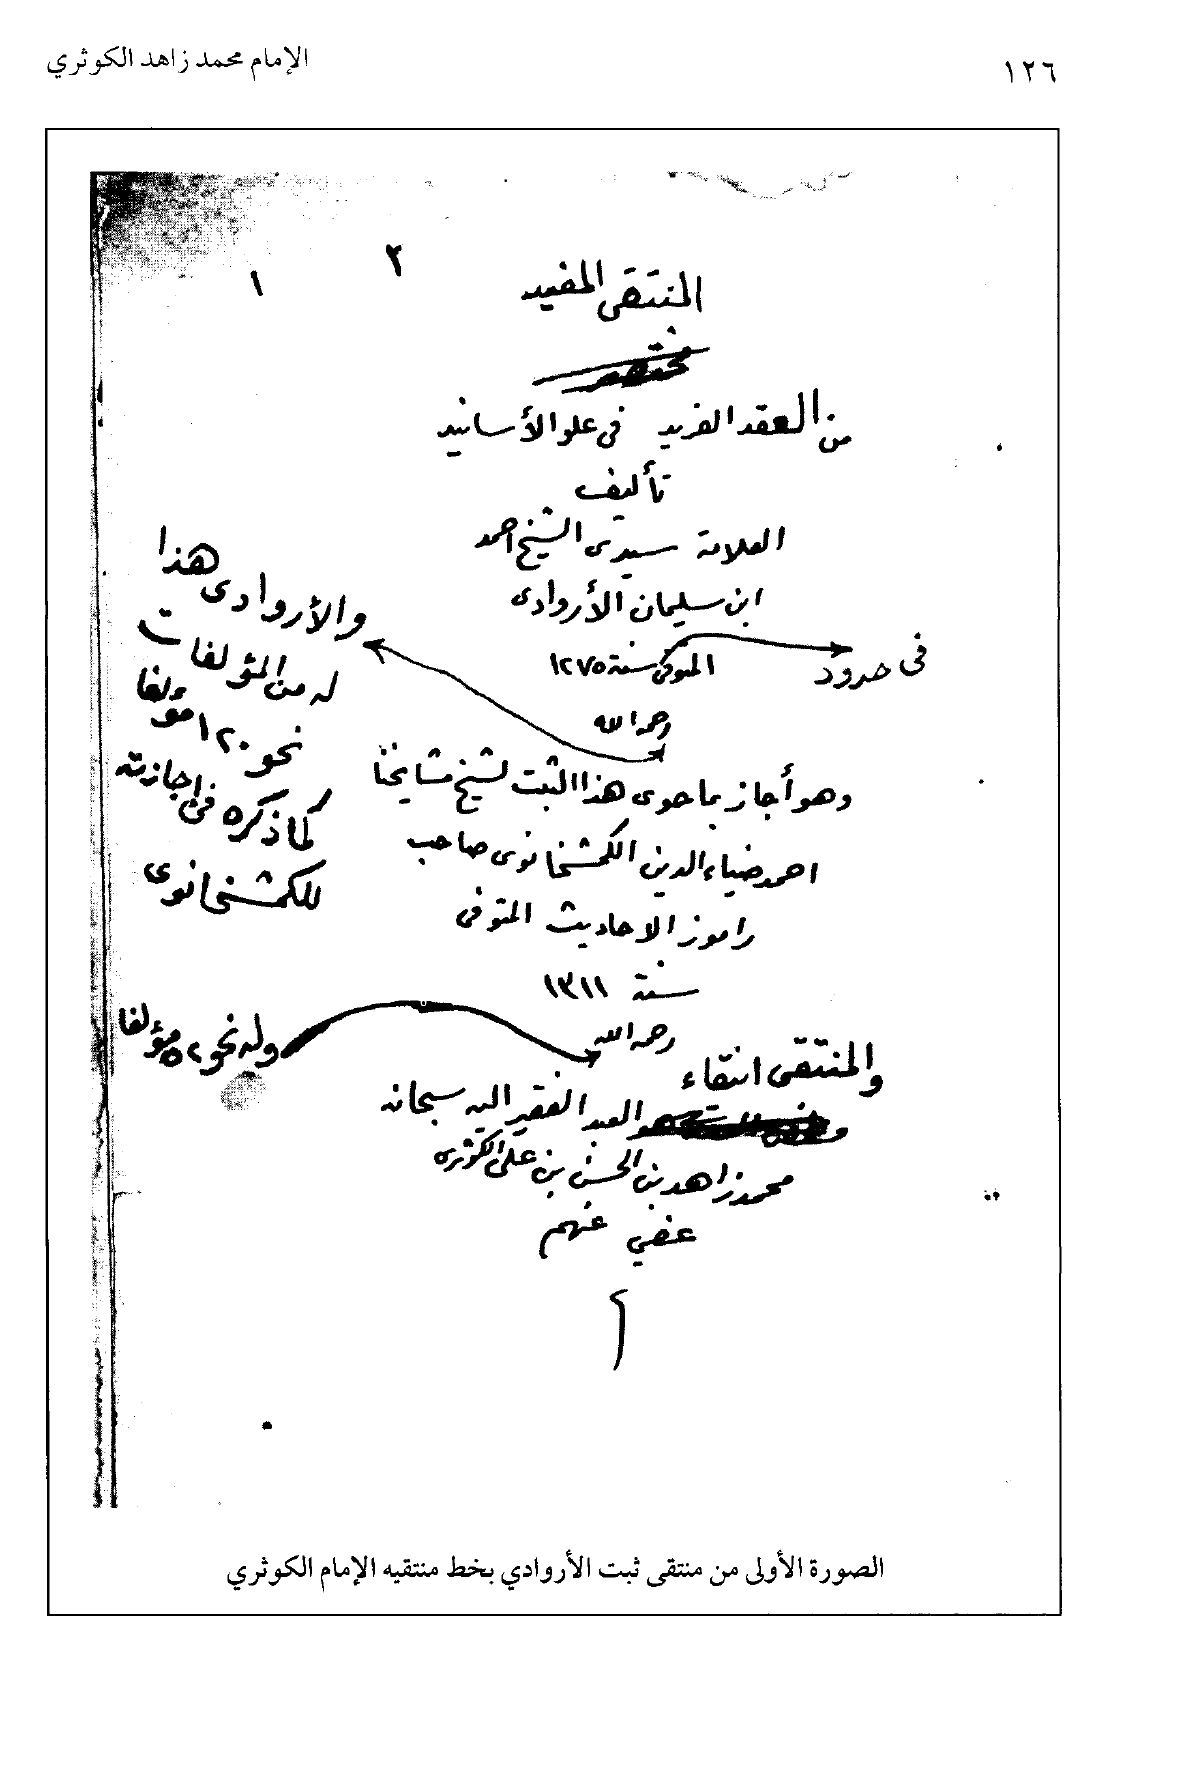 ١٢٦
الإمام محمد زاهد الكوثري
٢
١
المنتقى المفيد
مختصر
من العقد الفريد في علو الأسانيد
تأليف
العلامة سيدى الشيخ احمد
ابن سليمان الأروادى
المتوفى سنة ١٢٧٥
في حدود
رحمه الله
وهو أجاز بما حوى هذا الثبت لشيخ مشايخنا
احمد ضياء الدين الكمشخانوى صاحب
راموز الاحاديث المتوفى
سنة ١٣١١
رحمه الله
والمنتقى انتقاء
العبد الفقير اليه سبحانه
محمد زاهد بن الحسن بن على الكوثرى
عفي عنهم
والأروادى هذا
له من المؤلفات
نحو ١٢٠ مؤلفا
كما ذكره في اجازته
للكمشخانوى
وله نحو ٥٢ مؤلفا
الصورة الأولى من منتقى ثبت الأروادي بخط منتقيه الإمام الكوثري